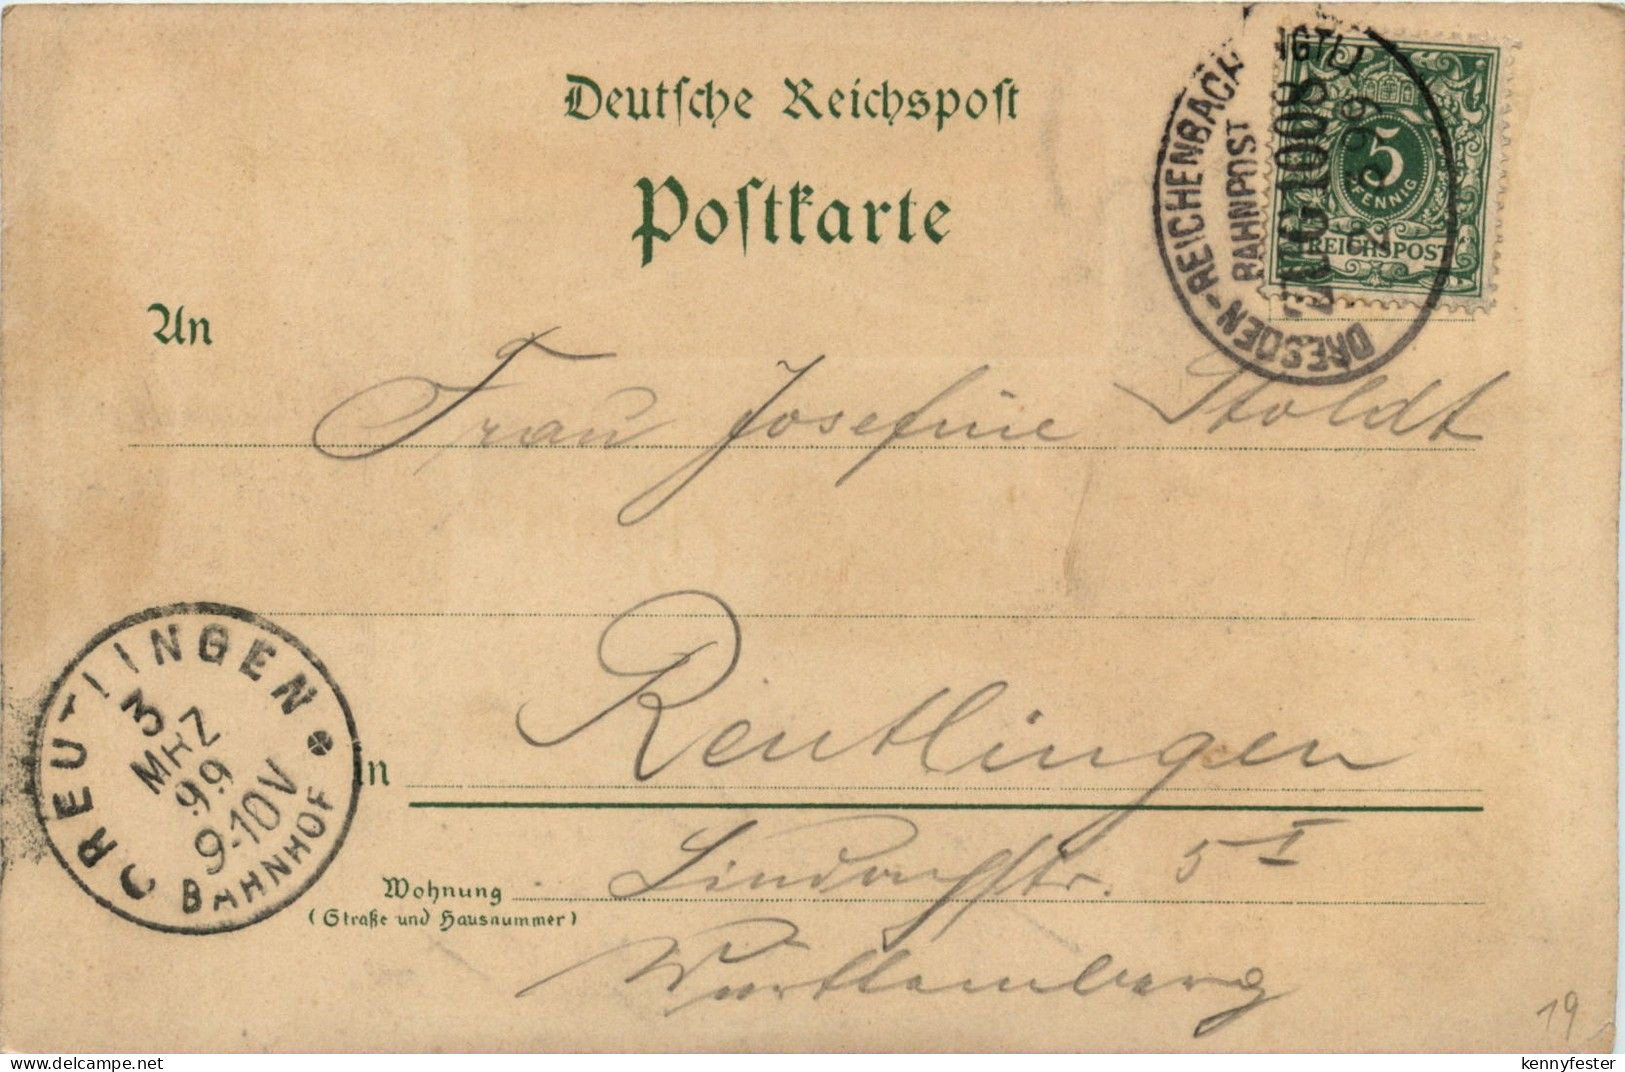 Deutsche Reichspost
Postkarte
DRESDEN-REICHENBACH
BAHNPOST
ZUG 1008
5
PFENNIG
REICHSPOST
An
Frau Josefine Stoldt
in Reutlingen
REUTLINGEN
3
MRZ
99
9-10V
BAHNHOF
Wohnung
(Straße und Hausnummer)
Lindachstr. 5 I
Württemberg
19
kennyfester